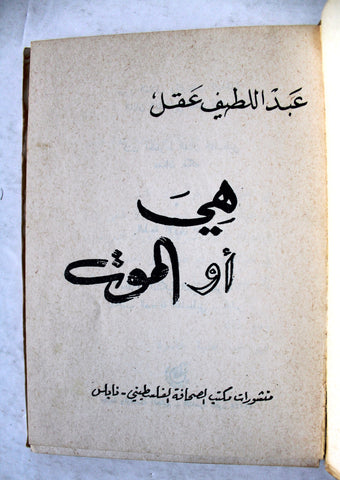 عَبْد اللطيف عَقل
هِيَ
أو الموت
منشورات مكتب الصحافة الفلسطيني - نابلس